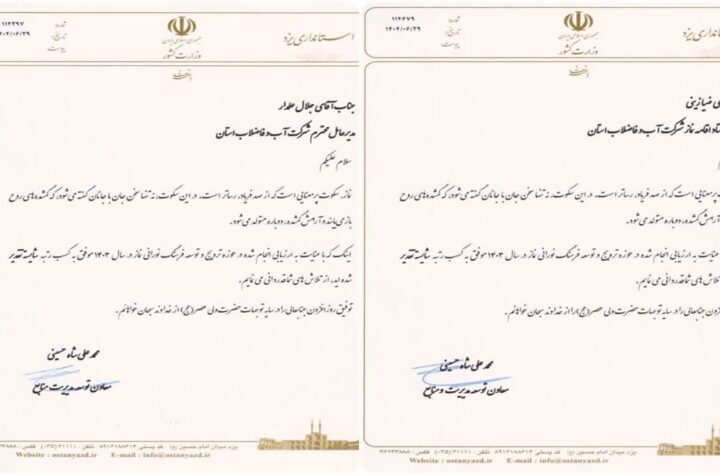 شماره : ۱۱۴۳۹۷
تاریخ : ۱۴۰۴/۰۶/۲۹
پیوست :
جمهوری اسلامی ایران
وزارت کشور
استانداری یزد
جناب آقای جلال علمدار
مدیرعامل محترم شرکت آب و فاضلاب استان
سلام علیکم
نماز، سکوت پرمعنایی است که از صد فریاد، رساتر است. در این سکوت، نه تنها سخن جان با جانان گفته می شود، که گمشده های روح
باز می یابند و آرامش گمشده، دوباره متولد می شود.
اینک که با عنایت به ارزیابی انجام شده در حوزه ترویج و توسعه فرهنگ نورانی نماز در سال ۱۴۰۳ موفق به کسب رتبه شایسته تقدیر
شده اید، از تلاش های شما قدردانی می نمایم.
توفیق روزافزون جنابعالی را در سایه توجهات حضرت ولی عصر(عج) از خداوند سبحان خواهانم.
محمد علی شاه حسینی
معاون توسعه مدیریت و منابع
یزد میدان امام حسین (ع) کد پستی ۸۹۱۳۱۸۸۶۱۳ تلفن : ۳۱۱۱۱ (۰۳۵) فکس :
Website : ostanyazd.ir E-mail : info@ostanyazd.ir
شماره : ۱۱۴۶۷۹
تاریخ : ۱۴۰۴/۰۶/۲۹
پیوست :
جمهوری اسلامی ایران
وزارت کشور
ستانداری یزد
ی ضیا زینی
تاد اقامه نماز شرکت آب و فاضلاب استان
پرمعنایی است که از صد فریاد، رساتر است. در این سکوت، نه تنها سخن جان با جانان گفته می شود، که گمشده های روح
آرامش گمشده، دوباره متولد می شود.
عنایت به ارزیابی انجام شده در حوزه ترویج و توسعه فرهنگ نورانی نماز در سال ۱۴۰۳ موفق به کسب رتبه شایسته تقدیر
تلاش های شما قدردانی می نمایم.
افزون جنابعالی را در سایه توجهات حضرت ولی عصر(عج) از خداوند سبحان خواهانم.
محمد علی شاه حسینی
معاون توسعه مدیریت و منابع
یزد میدان امام حسین (ع) کد پستی ۸۹۱۳۱۸۸۶۱۳ تلفن : ۳۱۱۱۱ (۰۳۵) فکس :
Website : ostanyazd.ir E-mail : info@ostanyazd.ir